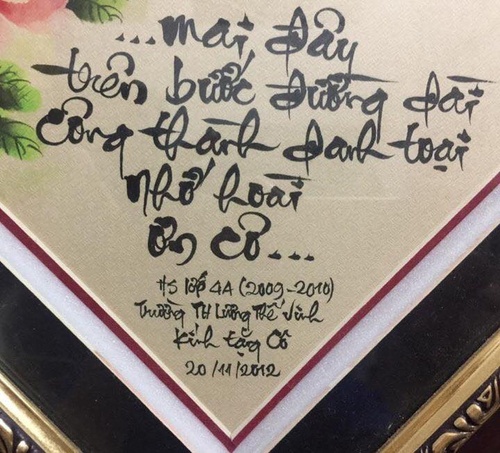 ...mai đây
trên bước đường dài
công thành danh toại
nhớ hoài
ơn cô...
HS lớp 4A (2009-2010)
Trường TH Lương Thế Vinh
Kính tặng Cô
20/11/2012